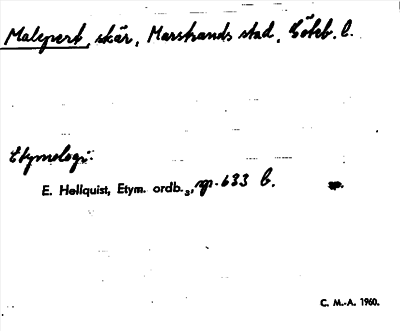 Malepert, skär, Marstrands stad, Göteb. l.
Etymologi:
E. Hellquist, Etym. ordb.₃, sp. 633 b.
C. M.-A. 1960.